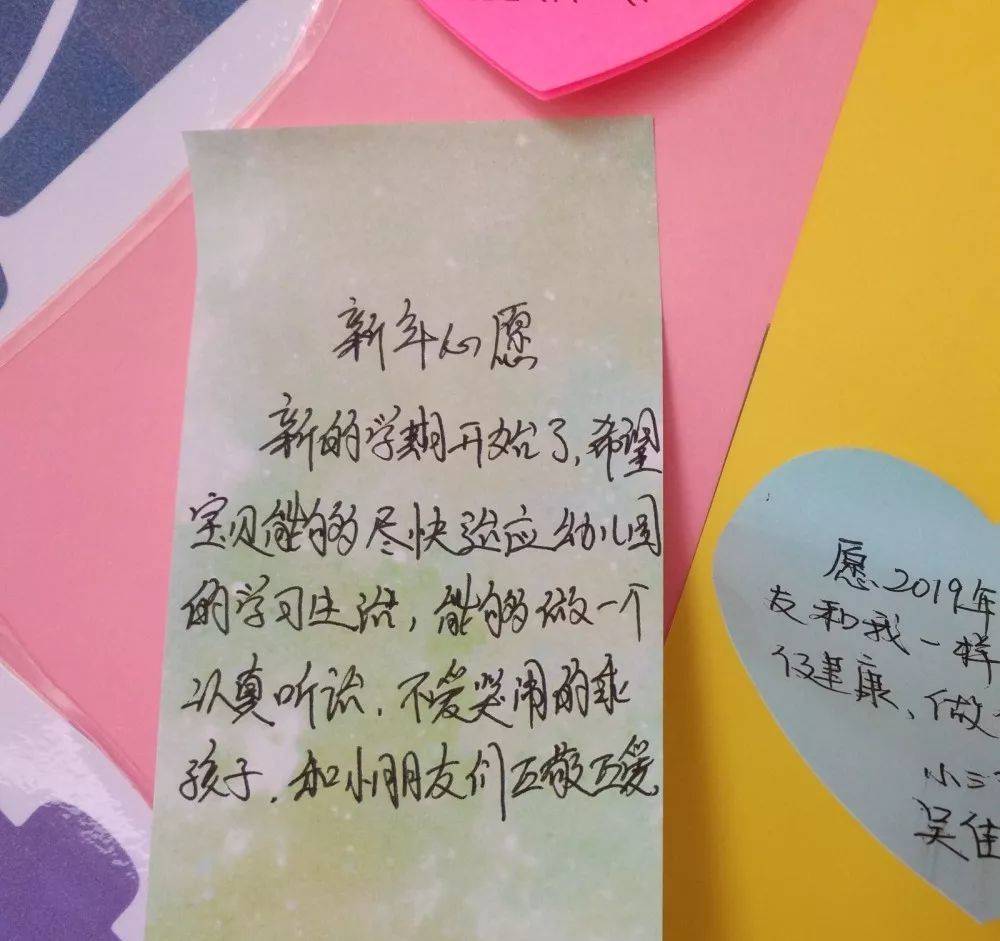 新年心愿
新的学期开始了,希望
宝贝能够尽快适应幼儿园
的学习生活,能够做一个
认真听话,不爱哭闹的乖
孩子,和小朋友们互敬互爱
愿2019年
友和我一样
健康、做
小三
吴佳